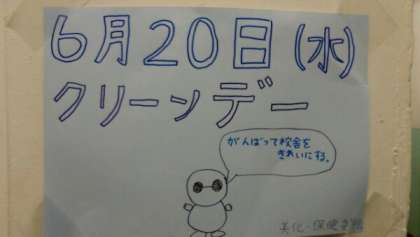 6月20日(水)
クリーンデー
がんばって校舎を
きれいにする。
美化・保健委員